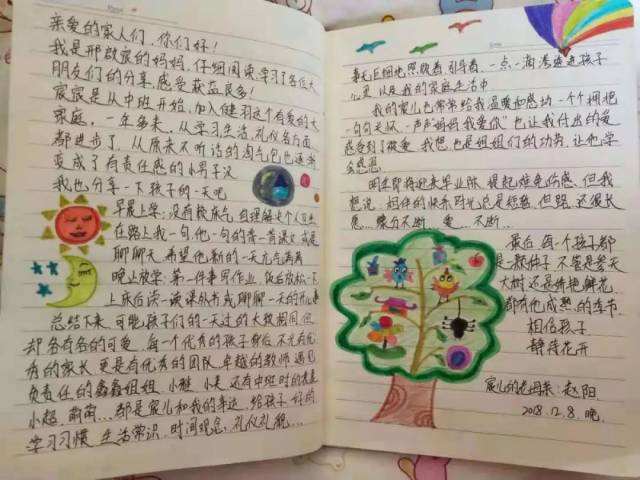 亲爱的家人们，你们好！
我是邢啟宸的妈妈，仔细阅读、学习了各位大
朋友们的分享，感受获益良多！
宸宸是从中班开始，加入健羽这个有爱的大
家庭，一年多来，从学习生活，礼仪各方面
都进步了，从原来不听话的淘气包也逐渐
变成了有责任感的小男子汉
我也分享一下孩子的一天吧
早晨上学：没有
在路上我一句，他一句的背一背课文，或是
聊聊天，希望他新的一天元气满满
晚上放学：第一件事写作业，饭后放松一下
上床后读一读课外书或聊聊一天的
总结下来，可能孩子们的一天过的大致相同，但
却各有各的可爱，每一个优秀的孩子身后，不光有优
秀的家长，更是有优秀的团队，卓越的教师，遇见
负责任的鑫鑫姐姐，小
小超，萌萌…都是宸儿和我的幸运，给孩子好的
学习习惯，生活常识，时间观念，礼仪礼貌……
事无巨细地照顾着，引导着，一点一滴渗透进孩子
心灵，以及我的家庭生活中
我的宸儿也常常给我温暖和感动，一个个拥抱
一句句关怀，一声声“妈妈我爱你”也让我付出的爱
感受到了被爱，我想，也是姐姐们的功劳，让他学
会感恩
明年即将迎来毕业际，提起难免伤感，但我
想说，相伴的快乐时光总是短暂，但路还很长
您…缘分不断，爱…不断…
最后，每个孩子都
是一颗种子，不管是参天
大树还是娇艳鲜花
都有他成熟的季节
相信孩子
静待花开
宸儿的老母亲：赵阳
2018.12.8.晚